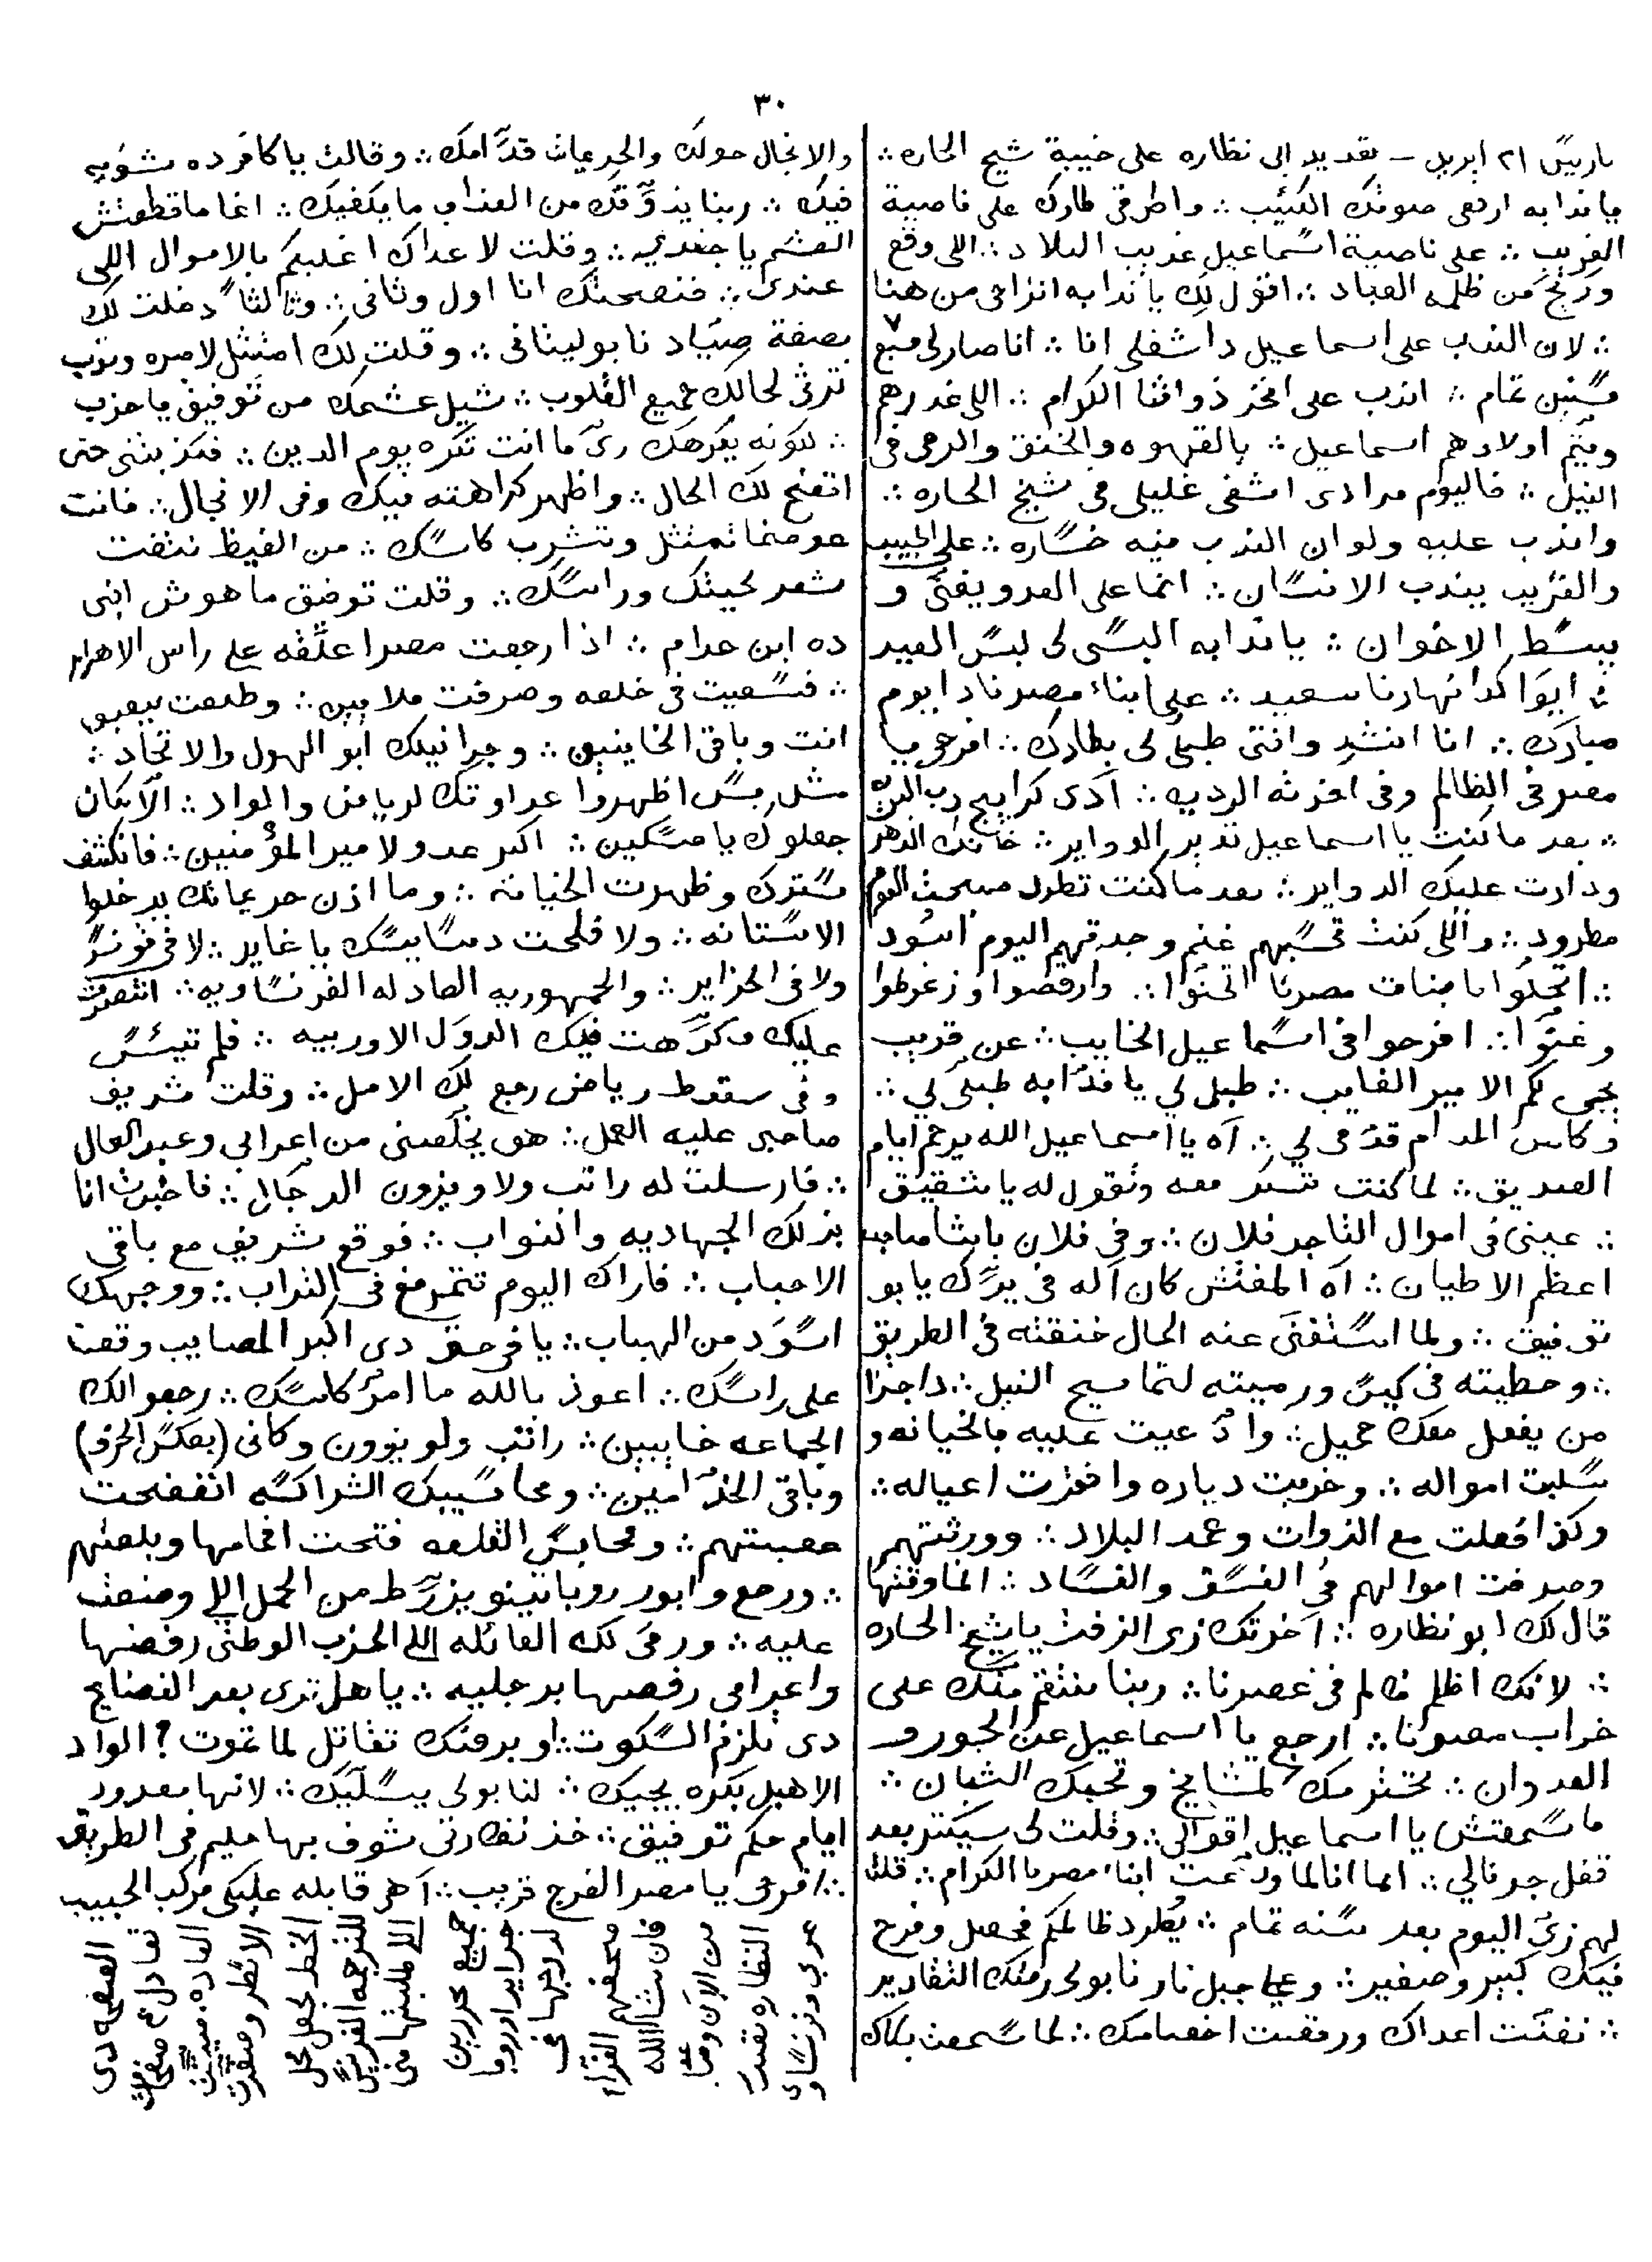 ٣٠
باريس ٢١ ابريل – تعديد ابى نظاره على خيبة شيخ الحاره ∴
يا ندابه ارفعى صوتك الكئيب ∴ واطرقى طارك على ناصية
الغريب ∴ على ناصية اسماعيل غريب البلاد ∴ اللى وقع
من ظلمه العباد ∴ اقول لك يا ندابه انزاحى من هنا
∴ لان الندب على اسماعيل دا شغلى انا ∴ انا صار لى سبع
سنين تمام ∴ اندب على افخر ذواتنا الكرام ∴ اللى غدرهم
ويتم اولادهم اسماعيل ∴ بالقهوه والخنق والرمى فى
النيل ∴ فاليوم مرادى اشفى غليلى فى شيخ الحاره ∴
واندب عليه ولو ان الندب فيه خساره ∴ على الحبيب
والقريب يندب الانسان ∴ انما على العدو يغنى و
يبسط الاخوان ∴ يا ندابه البسى لى لبس العيد
∴ ايوا كدا نهارنا سعيد ∴ على ابناء مصرنا دا يوم
مبارك ∴ انا انشد وانتى طبلى لى بطارك ∴ افرحى يا
مصر فى الظالم وفى اخرته الرديه ∴ آدى كرابيج رب البريه
∴ بعد ما كنت يا اسماعيل تدبر الدواير ∴ خانك الدهر
ودارت عليك الدواير ∴ بعد ما كنت تطرد صبحت اليوم
مطرود ∴ واللى كنت تحسبهم غنم وجدتهم اليوم اسود
∴ اتجلوا يا بنات مصرنا اتحنوا ∴ وارقصوا وزغرطوا
وغنوا ∴ افرحوا فى اسماعيل الخايب ∴ عن قريب
يجى لكم الامير الغايب ∴ طبلى لى يا ندابه طبلى لى ∴
وكاس المدام قدمى لى ∴ آه يا اسماعيل الله يرحم ايام
الصديق ∴ لما كنت تسكر معه وتقول له يا شقيق
∴ عينى فى اموال التاجر فلان ∴ وفى فلان باشا صاحب
اعظم الاطيان ∴ آه المفتش كان آله فى يدك يا بو
توفيق ∴ ولما استغنى عنه الحال خنقته فى الطريق
∴ وحطيته فى كيس ورميته لتماسيح النيل ∴ دا جزا
من يفعل معك جميل ∴ وادعيت عليه بالخيانه و
سلبت امواله ∴ وخربت دياره واخذت اعياله ∴
وكذا فعلت مع الذوات وعمد البلاد ∴ وورثتهم
وصرفت اموالهم فى الفسق والفساد ∴ انما وقتها
قال لك ابو نظاره ∴ آخرتك زى الزفت يا شيخ الحاره
∴ لانك اظلم ظالم فى عصرنا ∴ ربنا ينتقم منك على
خراب مصرنا ∴ ارجع يا اسماعيل عن الجور و
العدوان ∴ تحترمك المشايخ وتحبك الشبان ∴
ما سمعتش يا اسماعيل اقوالى ∴ وقلت لى سيكتر بعد
قفل جرنالى ∴ اما انا لما ودعت ابناء مصرنا الكرام ∴ قلت
لهم زى اليوم بعد سنه تمام ∴ يطرد ظالمكم فحصل وفرح
فيك كبير وصغير ∴ وعلى جبل نار نابولى رمتك التقادير
∴ نفدت اعداك ورقصت اخصامك ∴ لما سمعت بكاك
والانجال حولك والحريمات قدامك ∴ وقالت يا كافر ده شويه
فيك ∴ ربنا يذوقك من العذاب ما يكفيك ∴ انما ما قطعتش
العشم يا جندى ∴ وقلت لاعداك اغلبكم بالاموال اللى
عندى ∴ فنصحتك انا اول وثانى ∴ وثالثا دخلت لك
بصفة صياد نابوليتانى ∴ وقلت لك امتثل لامره وتوب
ترثى لحالك جميع القلوب ∴ شيل عشمك من توفيق يا حزين
∴ لكونه يكرهك زى ما انت تكره يوم الدين ∴ فكذبتنى حتى
اتضح لك الحال ∴ واظهر كراهته فيك وفى الانجال ∴ فانت
عوضما تمتثل وتشرب كاسك ∴ من الغيظ نتفت
شعر لحيتك وراسك ∴ وقلت توفيق ما هوش ابنى
ده ابن حرام ∴ اذا رجعت مصر اعلقه على راس الاهرام
∴ فسعيت فى خلعه وصرفت ملايين ∴ وطلعت
انت وباقى الخاينين ∴ وجرانيلك ابو الهول والاتحاد ∴
اظهروا عداوتك لرياض والواد ∴ الآنكان
جعلوك يا مسكين ∴ اكبر عدو لامير المؤمنين ∴ فانكشف
سترك وظهرت الخيانه ∴ وما اذن حريماتك يدخلوا
الاستانه ∴ ولا فلحت دسايسك يا غاير ∴ لا فى تونس
ولا فى الجزاير ∴ والجمهوريه العادله الفرنساويه ∴ انتصرت
عليك وكرهت فيك الدول الاوربيه ∴ فلم تيئس
وفى سقوط رياض رجع لك الامل ∴ وقلت شريف
صاحبى عليه العمل ∴ هو يخلصنى من اعرابى وعبد العال
∴ فارسلت له راتب ولاويزون الدجال ∴ فاخبرت انا
بذلك الجهاديه والنواب ∴ فوقع شريف مع باقى
الاحباب ∴ فاراك اليوم تتمرمغ فى التراب ∴ ووجهك
اسود من الهباب ∴ يا فرحتى دى اكبر المصايب وقعت
على راسك ∴ اعوذ بالله ما امر كاسك ∴ رجعوا لك
الجماعه خايبين ∴ راتب ولويزون وكانى (بعكس الحرف)
وباقى الخدامين ∴ ومحاسيبك الشراكسه اتفضحت
عصبتهم ∴ ومحابس القلعه فتحت افمامها وبلعتهم
∴ ورجع وابور روباتينو يزرط من الحمل اللى وضعت
عليه ∴ ورمى لك العائله اللى الحزب الوطنى رفضها
واعرابى رفصها برجليه ∴ يا هل ترى بعد الفضايح
دى تلزم السكوت ∴ او بدمك تقاتل لما تموت ؟ الواد
الاهبل بكره يجيك ∴ لنابولى يسليك ∴ لانها معدود
ايام حكم توفيق ∴ خذ نظارتى شوف بها حليم فى الطريق
∴ افرحى يا مصر الفرج قريب ∴ آهى قابله عليكى مركب الحبيب
الصفحه دى
تعادل ٤ صفحات
العاده. ضيقت
الاسطر وصغرت
الخط لجعل محل
للترجمه الفرنساوى
اللى طلبتها منى
جميع محررين
جرايد اوروبا
لدرجها فى
صحفهم الغراء
فان شاء الله
من الآن وصاعدا
النظاره تصدر
عربى وفرنساوى